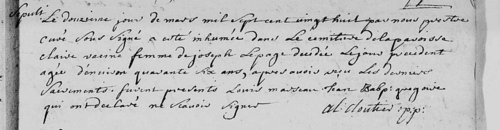 Sepult.
Le douzieme jour de mars mil sept cent vingt huit par nous prestre
curé sous signé a esté inhumée dans le cimitiere de la paroisse
claire racine femme de joseph lepage decedée le jour precedent
agee d'environ quarante six ans, apres avoir reçu les derniers
sacrements. furent presents Louis marseau Jean Bapt gregoire
qui ont declaré ne scavoir signer
al. cloutier ptr: